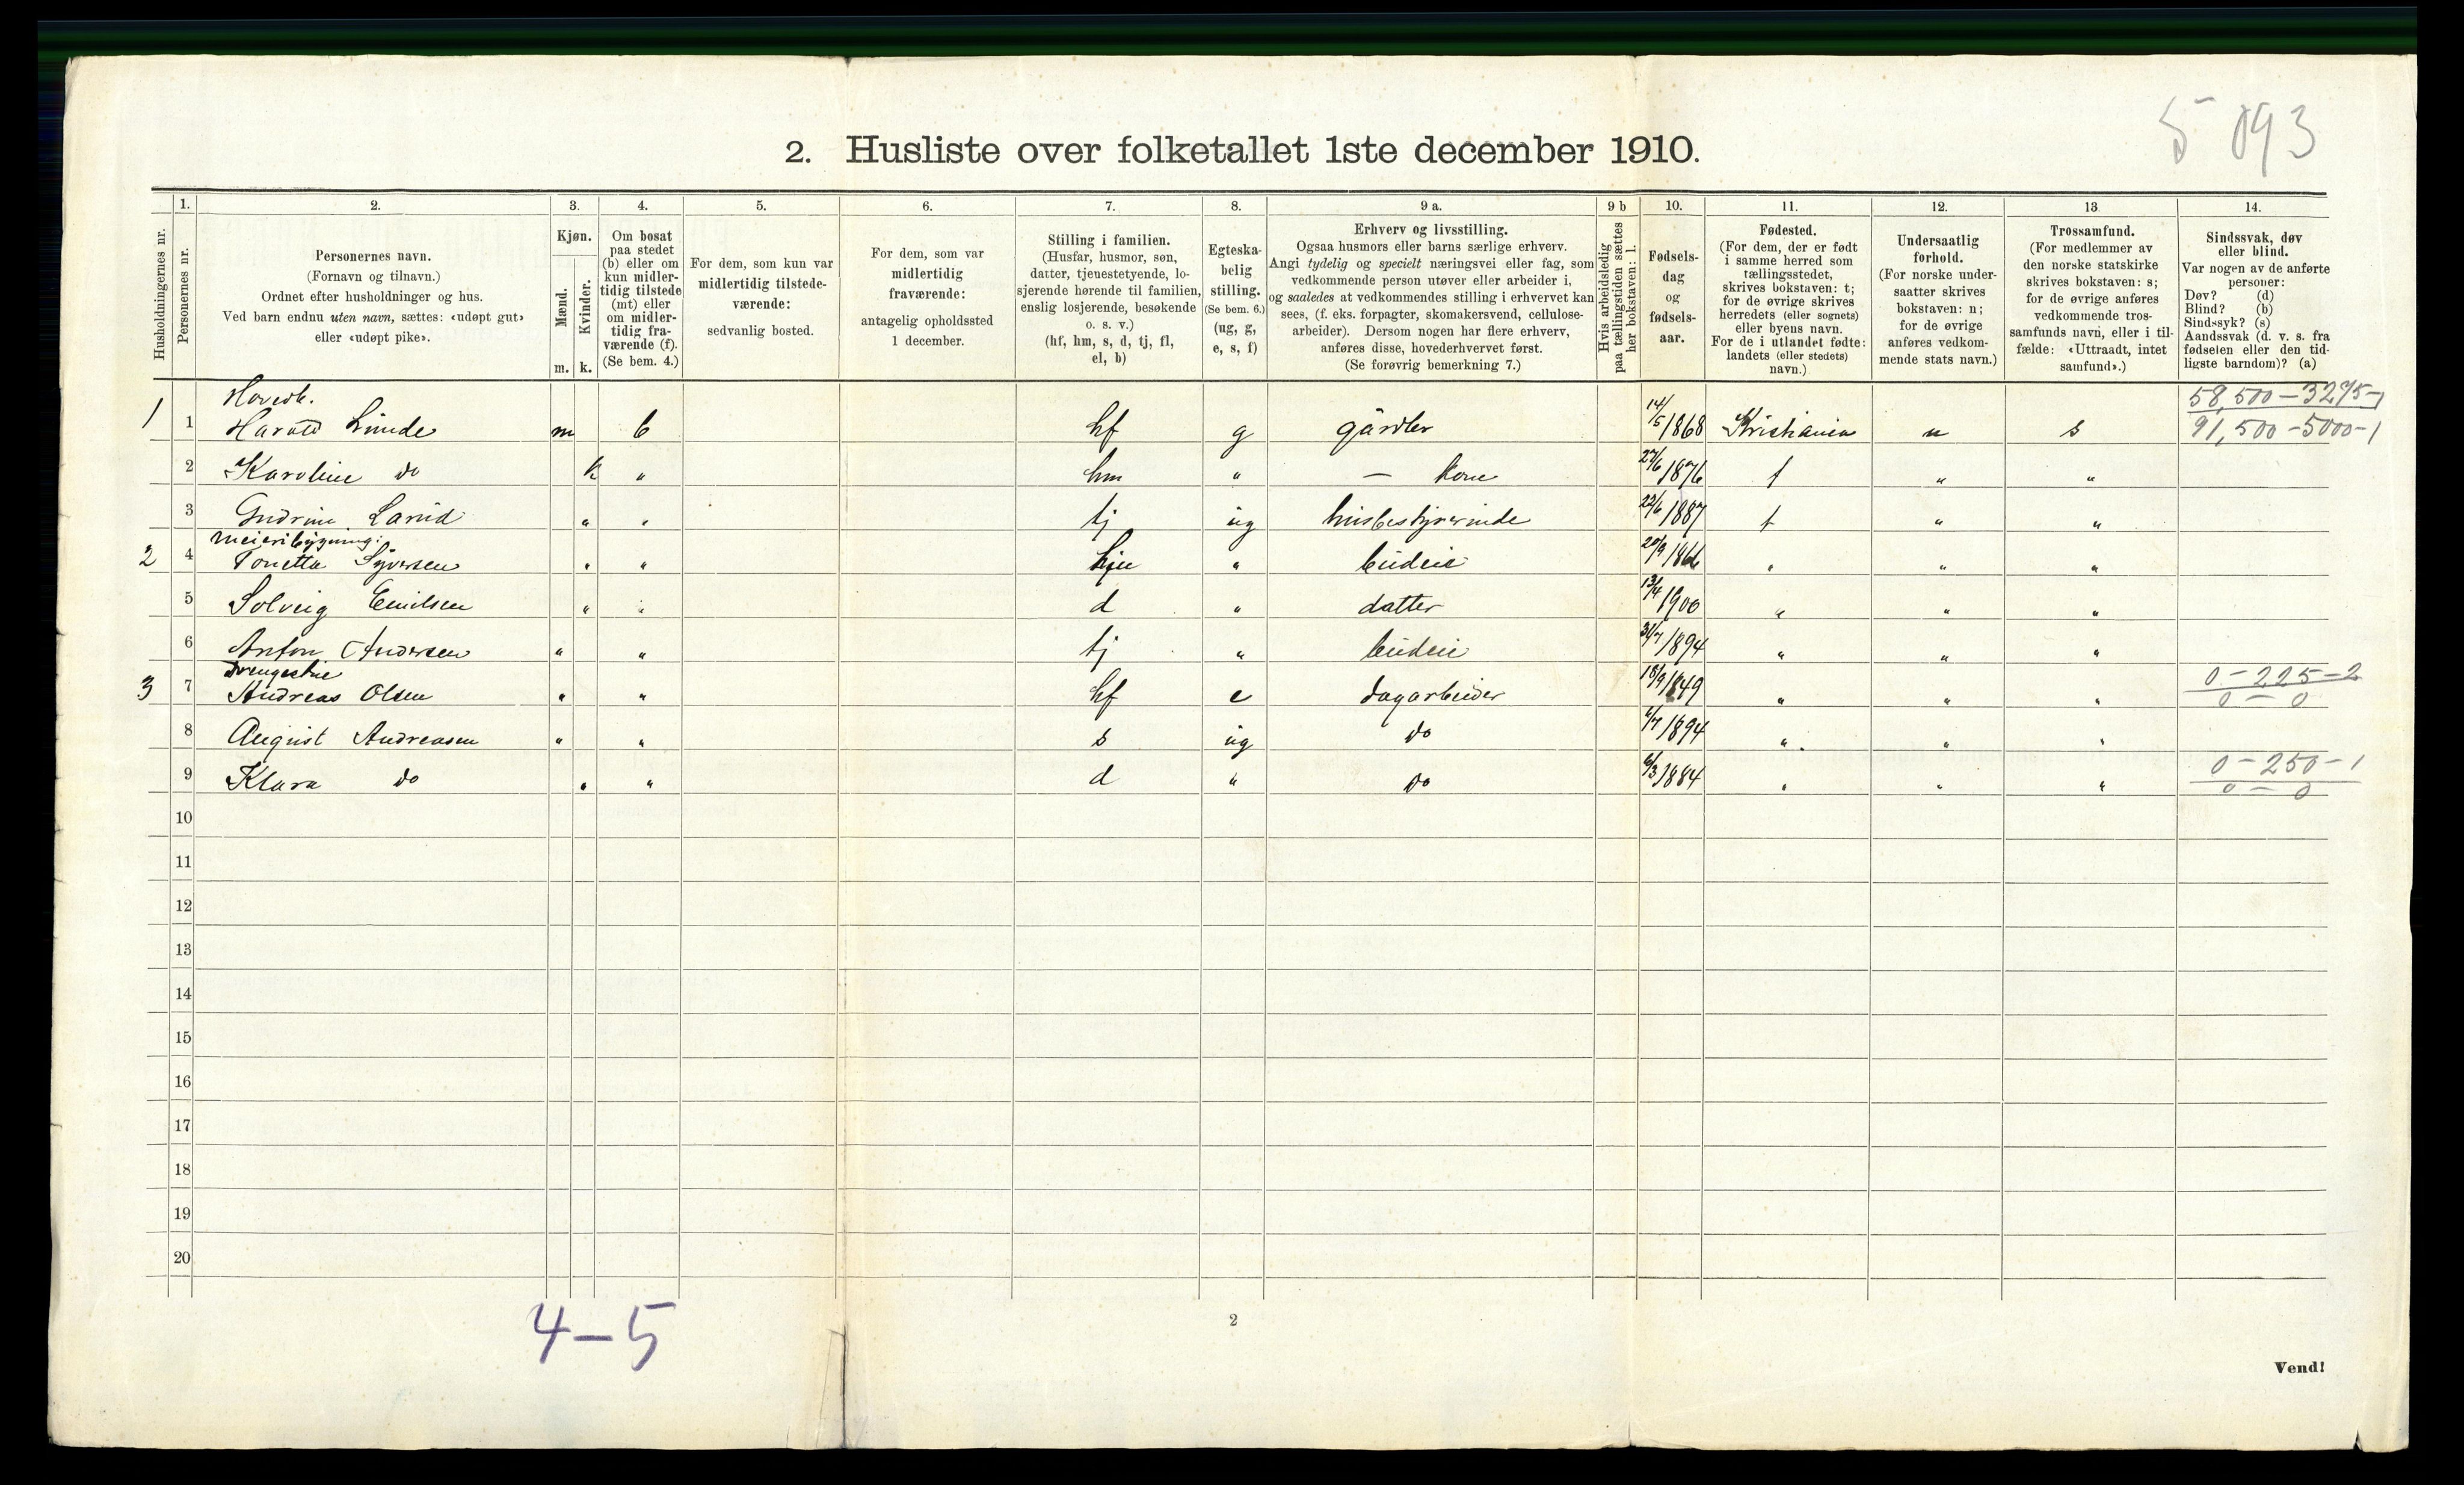 5 093
2. Husliste over folketallet 1ste december 1910.
Husholdningernes nr.
1.
Personernes nr.
2.
Personernes navn.
(Fornavn og tilnavn.)
Ordnet efter husholdninger og hus.
Ved barn endnu uten navn, sættes: «udøpt gut»
eller «udøpt pike».
3.
Kjøn.
Mænd.
Kvinder.
m. k.
4.
Om bosat
paa stedet
(b) eller om
kun midler-
tidig tilstede
(mt) eller
om midler-
tidig fra-
værende (f).
(Se bem. 4.)
5.
For dem, som kun var
midlertidig tilstede-
værende:
sedvanlig bosted.
6.
For dem, som var
midlertidig
fraværende:
antagelig opholdssted
1 december.
7.
Stilling i familien.
(Husfar, husmor, søn,
datter, tjenestetyende, lo-
sjerende hørende til familien,
enslig losjerende, besøkende
o. s. v.)
(hf, hm, s, d, tj, fl,
el, b)
8.
Egteska-
belig
stilling.
(Se bem. 6.)
(ug, g,
e, s, f)
9 a.
Erhverv og livsstilling.
Ogsaa husmors eller barns særlige erhverv.
Angi tydelig og specielt næringsvei eller fag, som
vedkommende person utøver eller arbeider i,
og saaledes at vedkommendes stilling i erhvervet kan
sees, (f. eks. forpagter, skomakersvend, cellulose-
arbeider). Dersom nogen har flere erhverv,
anføres disse, hovederhvervet først.
(Se forøvrig bemerkning 7.)
9 b
Hvis arbeidsledig
paa tællingstiden sættes
her bokstaven: l.
10.
Fødsels-
dag
og
fødsels-
aar.
11.
Fødested.
(For dem, der er født
i samme herred som
tællingsstedet,
skrives bokstaven: t;
for de øvrige skrives
herredets (eller sognets)
eller byens navn.
For de i utlandet fødte:
landets (eller stedets)
navn.)
12.
Undersaatlig
forhold.
(For norske under-
saatter skrives
bokstaven: n;
for de øvrige
anføres vedkom-
mende stats navn.)
13
Trossamfund.
(For medlemmer av
den norske statskirke
skrives bokstaven: s;
for de øvrige anføres
vedkommende tros-
samfunds navn, eller i til-
fælde: «Uttraadt, intet
samfund».)
14.
Sindssvak, døv
eller blind.
Var nogen av de anførte
personer:
Døv? (d)
Blind? (b)
Sindssyk? (s)
Aandssvak (d. v. s. fra
fødselen eller den tid-
ligste barndom)? (a)
Hovedb. 58,500-3275-1
1 1 Harald Linde m b hf g gårdbr 14/5 1868 Kristiania n s 91,500-5000-1
2 Karoline do k " hm " — kone 27/6 1876 t " "
3 Gudrun Larud " " tj ug husbestyrerinde 22/6 1887 t " "
Meieribygning:
2 4 Tonetta Syversen " " " budeie 20/9 1866 " " "
5 Solveig Emilsen " " d " datter 13/4 1900 " " "
6 Anton Andersen " " tj " budeie 31/7 1894 " " "
Drengestue 0-225-2
3 7 Andreas Olsen " " hf e dagarbeider 18/9 1849 " " " 0-0
8 August Andreasen " " s ug do 6/7 1894 " " "
0-250-1
9 Klara do " " d " do 6/3 1884 " " " 0-0
10
11
12
13
14
15
16
17
18
19
20
4-5
2
Vend!